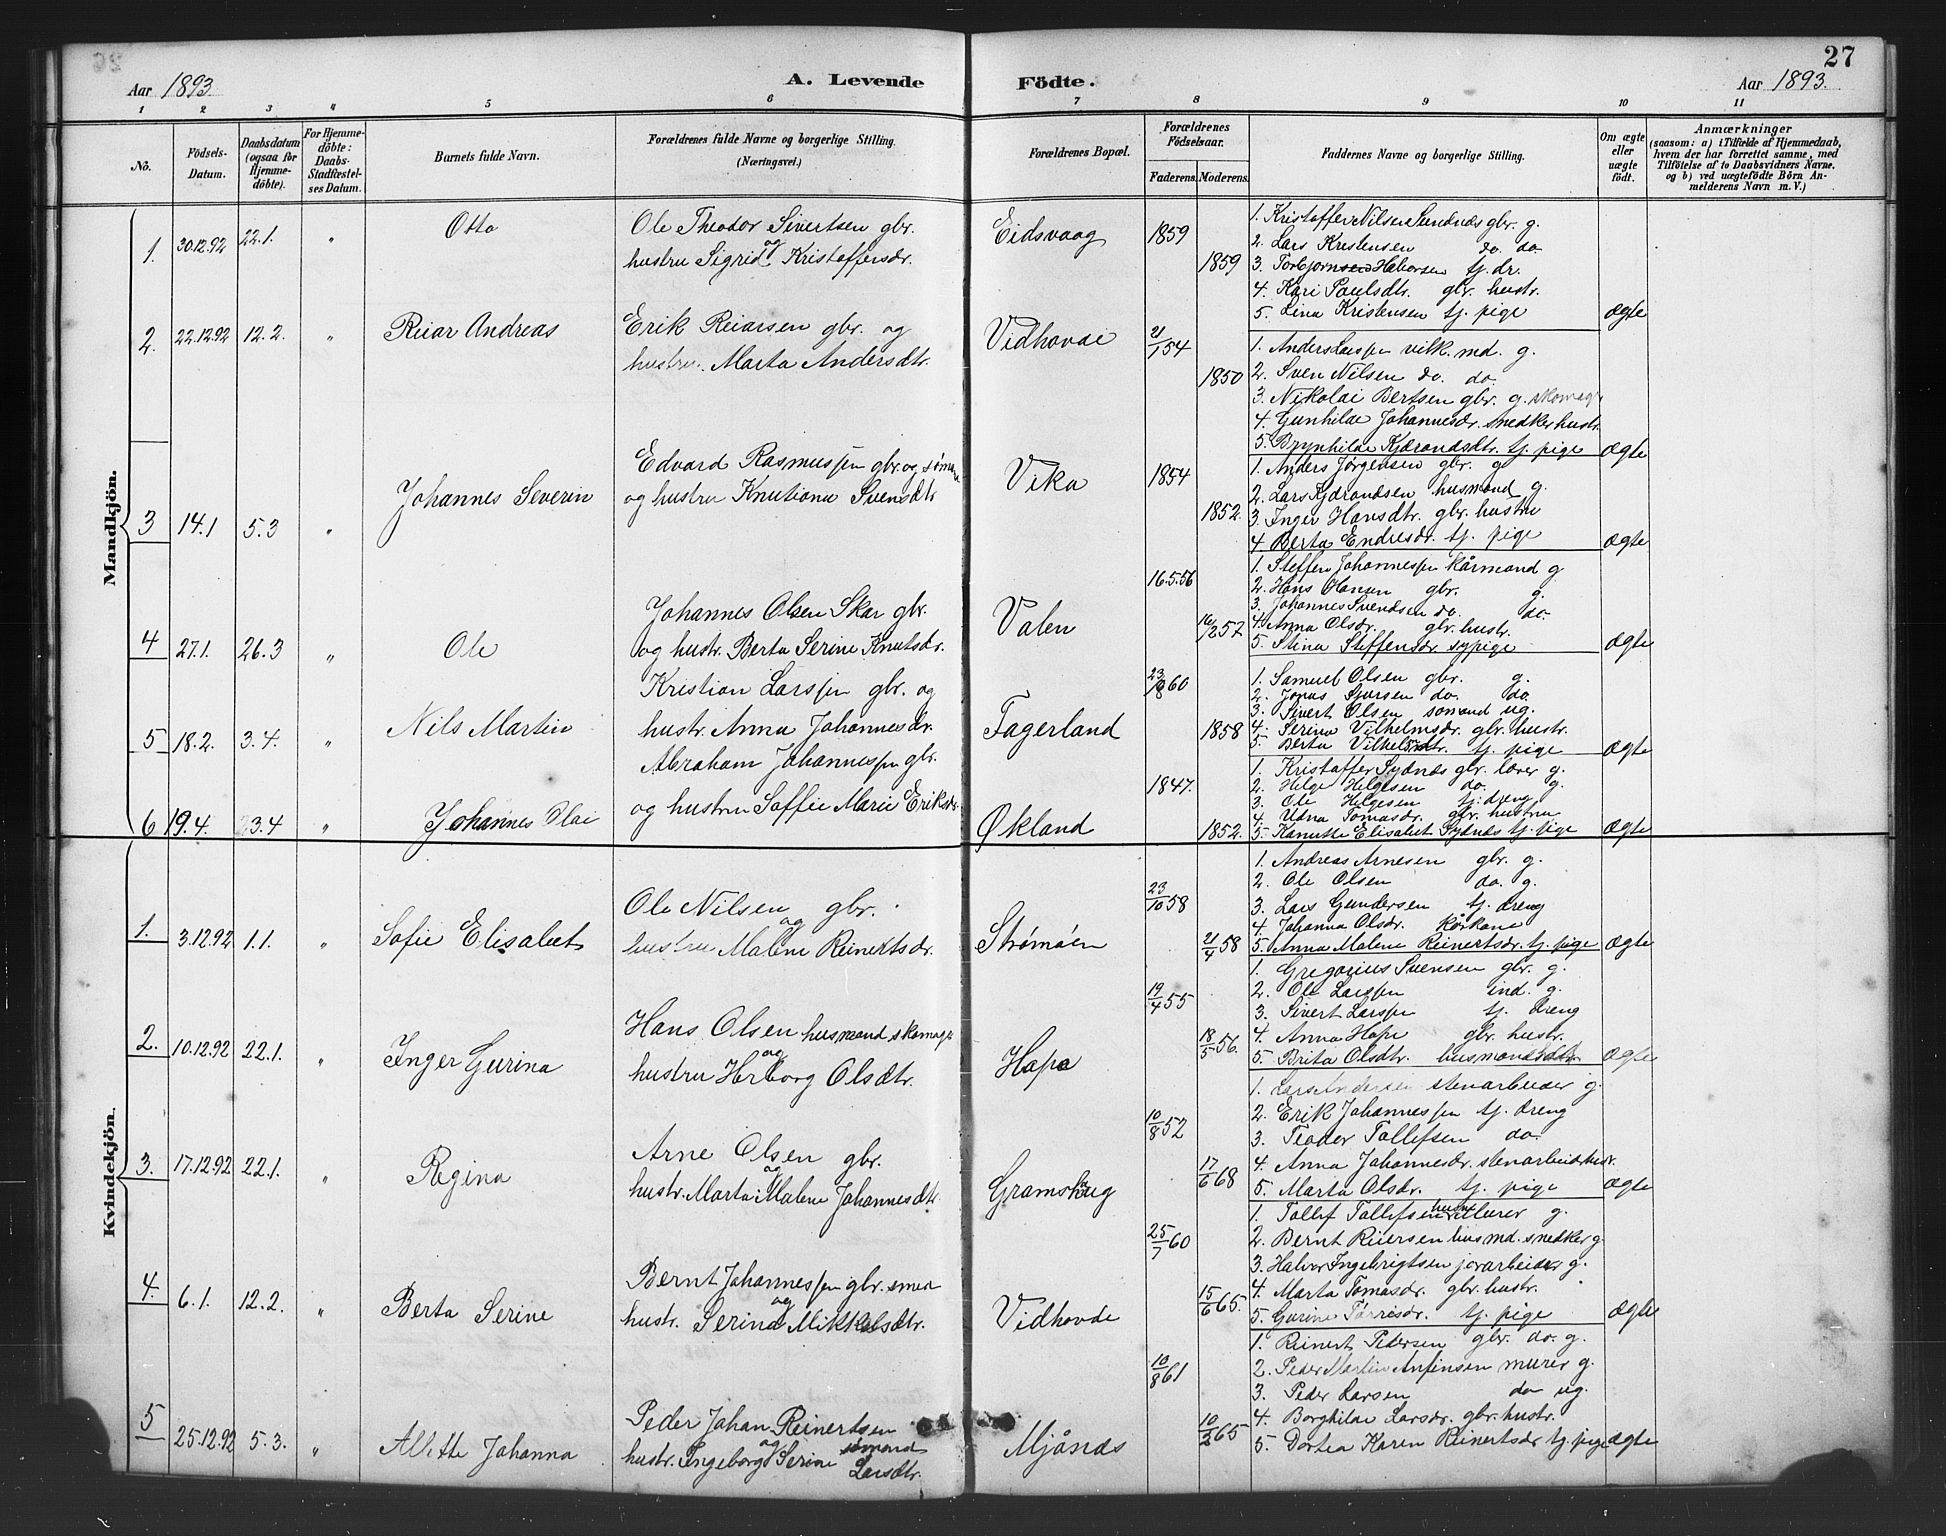 27
Aar 1893. A. Levende Födte. Aar 1893.
1 2 3 " 5 6 7 8 9 10 11
No.
Födsels-
Datum.
Daabsdatum
(ogsaa for
Hjemme-
döbte).
For Hjemme-
döbte:
Daabs-
Stadfæstel-
ses Datum.
Barnets fulde Navn.
Forældrenes fulde Navne og borgerlige Stilling.
(Næringsvei.)
Forældrenes Bopæl.
Forældrenes
Födselsaar.
Faderens. Moderens.
Faddernes Navne og borgerlige Stilling.
Om ægte
eller
uægte
födt.
Anmærkninger
(saasom: a) i Tilfælde af Hjemmedaab,
hvem der har forrettet samme, med
Tilföielse af to Daabsvidners Navne,
og b) ved uægtefödte Börn An-
melderens Navn m. V.)
Mandkjön.
1. 30.12.92 22.1. " Otto
Ole Theodor Sivertsen gbr.
og
hustru Sigrid Kristoffersdr.
Eidsvaag 1859 1859
1. Kristoffer Nilsen Sundnæs gbr. g.
2. Lars Kristensen do. do.
3. Torbjørnsen Halvorsen tj. dr.
4. Kari Paulsdtr. gbr. hustr.
5. Lina Kristensen tj. pige ægte
2. 22.12.92 12.2. " Reiar Andreas
Erik Reiarsen gbr. og
hustru. Marta Andersdtr.
Vidhovde 21/1 54 1850
1. Anders Larssen vilk. md. g.
2. Sven Nilsen do. do.
3. Nikolai Bertsen gbr. g. skomag.
4. Gunhilde Johannesdr. snedker hustr.
5. Brynhilde Kjærandsdtr. tj. pige ægte
3 14.1 5.3 " Johannes Severin
Edvard Rasmussen gbr. og sømand
og hustru Knutiane Svensdtr
Vika 1854 1852.
1. Anders Jørgensen gbr. g
2. Lars Kjærandsen husmand g.
3. Inger Hansdtr. gbr. hustru
4 Berta Endresdr. tj. pige ægte
4 27.1. 26.3 " Ole
Johannes Olsen Skar gbr.
og hustr. Berta Serine Knutsdr.
Valen 16.5.56 16/2 52
1. Steffen Johannessen kårmand g
2. Hans Hansen gbr. g.
3. Johannes Svendsen do. do.
4. Anna Olsdr. gbr. hustr.
5. Stina Steffensdr. sypige ægte
5 18.2. 3.4. " Nils Martin
Kristian Larssen gbr. og
hustr. Anna Johannesdr.
Fagerland 23/8 60 1858
1. Samuel Olsen gbr. g.
2. Jonas Sjursen do. do.
3. Sivert Olsen sømand ug.
4. Serina Vilhelmsdr. gbr. hustr.
5. Berta Vilhelmsdtr. tj. pige ægte
6 19.4. 23.4 " Johannes Olai
Abraham Johannessen gbr.
og hustru Soffie Marie Eriksdr.
Økland 1847. 1852.
1. Kristoffer Sydnæs gbr. lærer g.
2. Helge Helgesen do. g.
3. Ole Helgesen tj. dreng
4. Udna Tomasdr. gbr. hustru
5. Kanutte Elisabet Sydnæs tj. pige ægte
Kvindekjön.
1. 3.12.92 1.1. " Sofie Elisabet
Ole Nilsen gbr.
og
hustru Malene Reinertsdr.
Strømøen 23/10 58 21/4 58
1. Andreas Arnesen gbr. g.
2. Ole Olsen do. g.
3. Lars Gundersen tj. dreng
4. Johanna Olsdr. kårkone
5. Anna Malene Reinertsdr. tj. pige ægte
2. 10.12.92 22.1. " Inger Gurina
Hans Olsen husmand skomager
og
hustru Herborg Olsdtr.
Hope 19/4 55 18/5 56.
1. Gregorius Svensen gbr. g.
2. Ole Larssen ind. g.
3. Sivert Larssen tj. dreng
4. Anna Hope gbr. hustr.
5. Brita Olsdtr. husmandsdtr. ægte
3. 17.12.92 22.1. " Regina
Arne Olsen gbr.
og
hustr. Marta Malene Johannesdtr.
Gramshaug 10/8 52 17/6 68
1. Lars Andersen stenarbeider g.
2. Erik Johannessen tj. dreng
3. Teodor Tollefsen do.
4. Anna Johannesdr. stenarbeid. hustr.
5. Marta Olsdr. tj. pige ægte
4. 6.1. 12.2. " Berta Serine
Bernt Johannessen gbr. smed
og
hustr. Serina Mikkelsdtr.
Vidhovde 25/7 60 15/6 65.
1. Tollef Tollefsen murer g.
2. Bernt Reiersen husmd. snedker g.
3. Halvor Ingebrigtsen jorarbeider g.
4. Marta Tomasdr. gbr. hustr.
5. Gurine Tørrisdr. tj. pige ægte
5 25.12.92 5.3. " Alette Johanna
Peder Johan Reinertsen
og sømand
hustr. Ingeborg Serine Larsdtr.
Mjånes 10/8 61 10/2 65
1. Reinert Pedersen gbr. do. g.
2. Peder Martin Anfinsen murer g.
3. Peder Larsen do ug.
4. Borghilde Larsdr. gbr. hustr.
5. Dortea Karen Reinertsdr tj. pige ægte